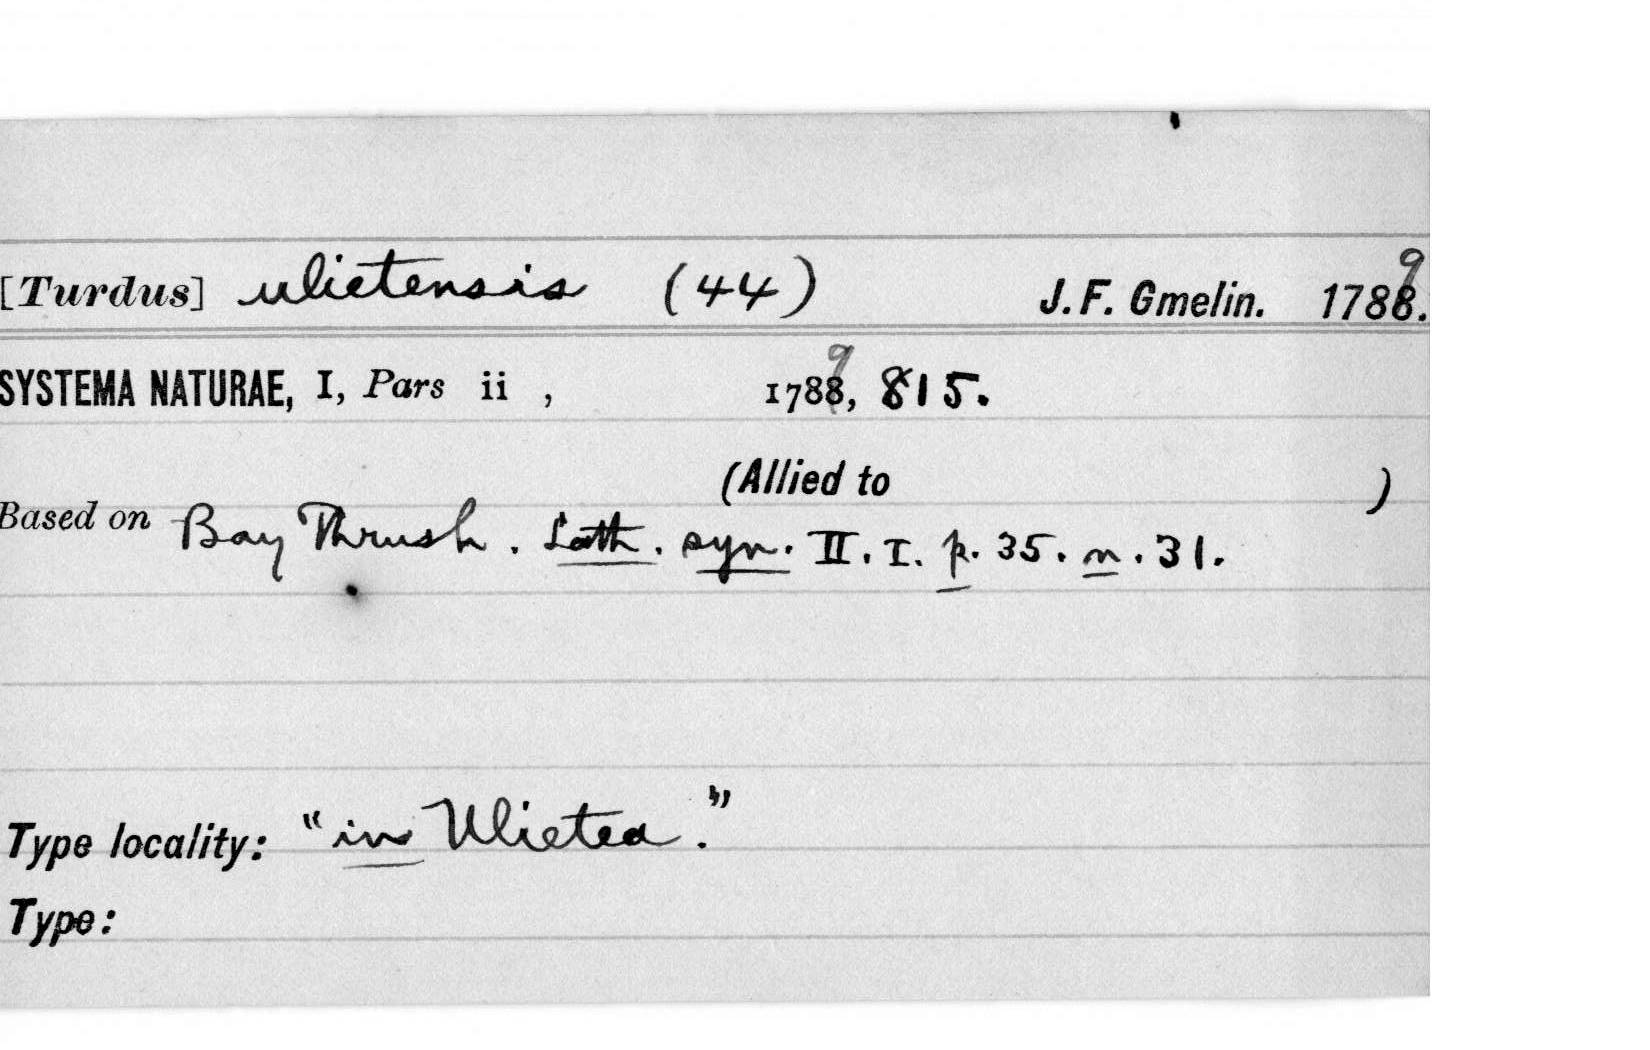 [Turdus] ulietensis (44) J. F. Gmelin. 1789.
SYSTEMA NATURAE, I, Pars ii , 1789, 815.
(Allied to )
Based on Bay Thrush. Lath. syn. II. I. p. 35. n. 31.
Type locality: "in Ulietea."
Type: